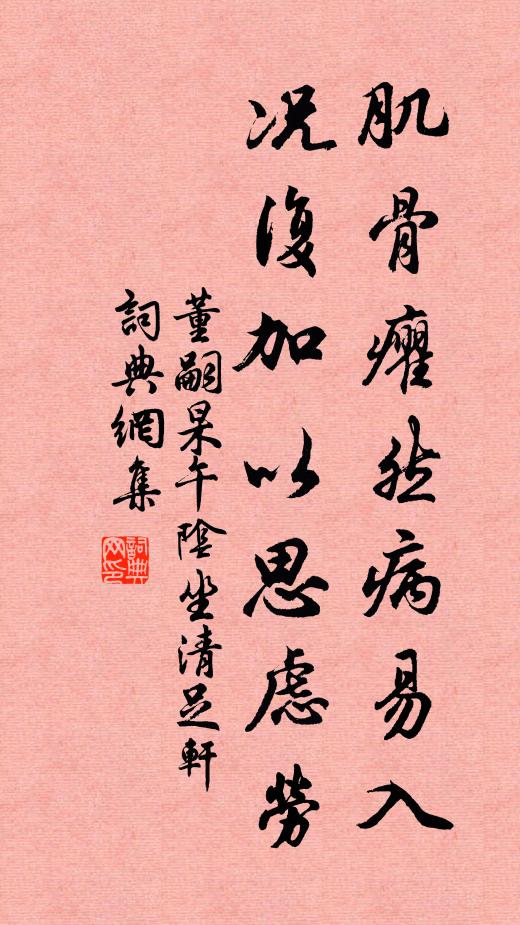 肌骨癯然病易入
况復加以思慮勞
董嗣杲午陰坐清足軒
詞典網集
詞典网印